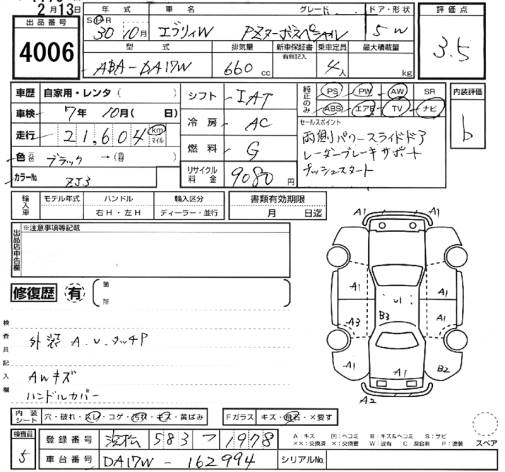 2月13日
出品番号
4006
年式
車名
グレード
ドア・形状
30年10月
エブリィW
PZターボスペシャル
5 W
型式
排気量
新車保証書
有無別記入
乗車定員
最大積載量
ABA-DA17W
660 cc
4人
kg
評価点
3.5
車歴
自家用・レンタ
車検
7年 10月( 日)
走行
21,604
km
マイル
色
ブラック
カラーNo.
ZJ3
シフト
IAT
冷房
AC
燃料
G
リサイクル料金
9080円
純正のみ
PS PW AW SR
ABS エアB TV ナビ
セールスポイント
両側パワースライドドア
レーダーブレーキサポート
プッシュスタート
内装評価
b
輸入車
モデル年式
ハンドル
右H・左H
輸入区分
ディーラー・並行
書類有効期限
月 日迄
出品店申告欄
※注意事項等記載
修復歴
有
箇所
検査員記入欄
外装 A.U.タッチP
AWキズ
ハンドルカバー
A1
A1
A1
A1
A1
U1
A3
B3
A1
A1
B2
A2
内装シート
穴・破れ・スレ・コゲ・汚れ・キズ・黄ばみ
Fガラス
キズ・飛石・×要す
スペア
検査員
5
登録番号
浜松 583 ワ 1978
車台番号
DA17W - 162994
シリアルNo.